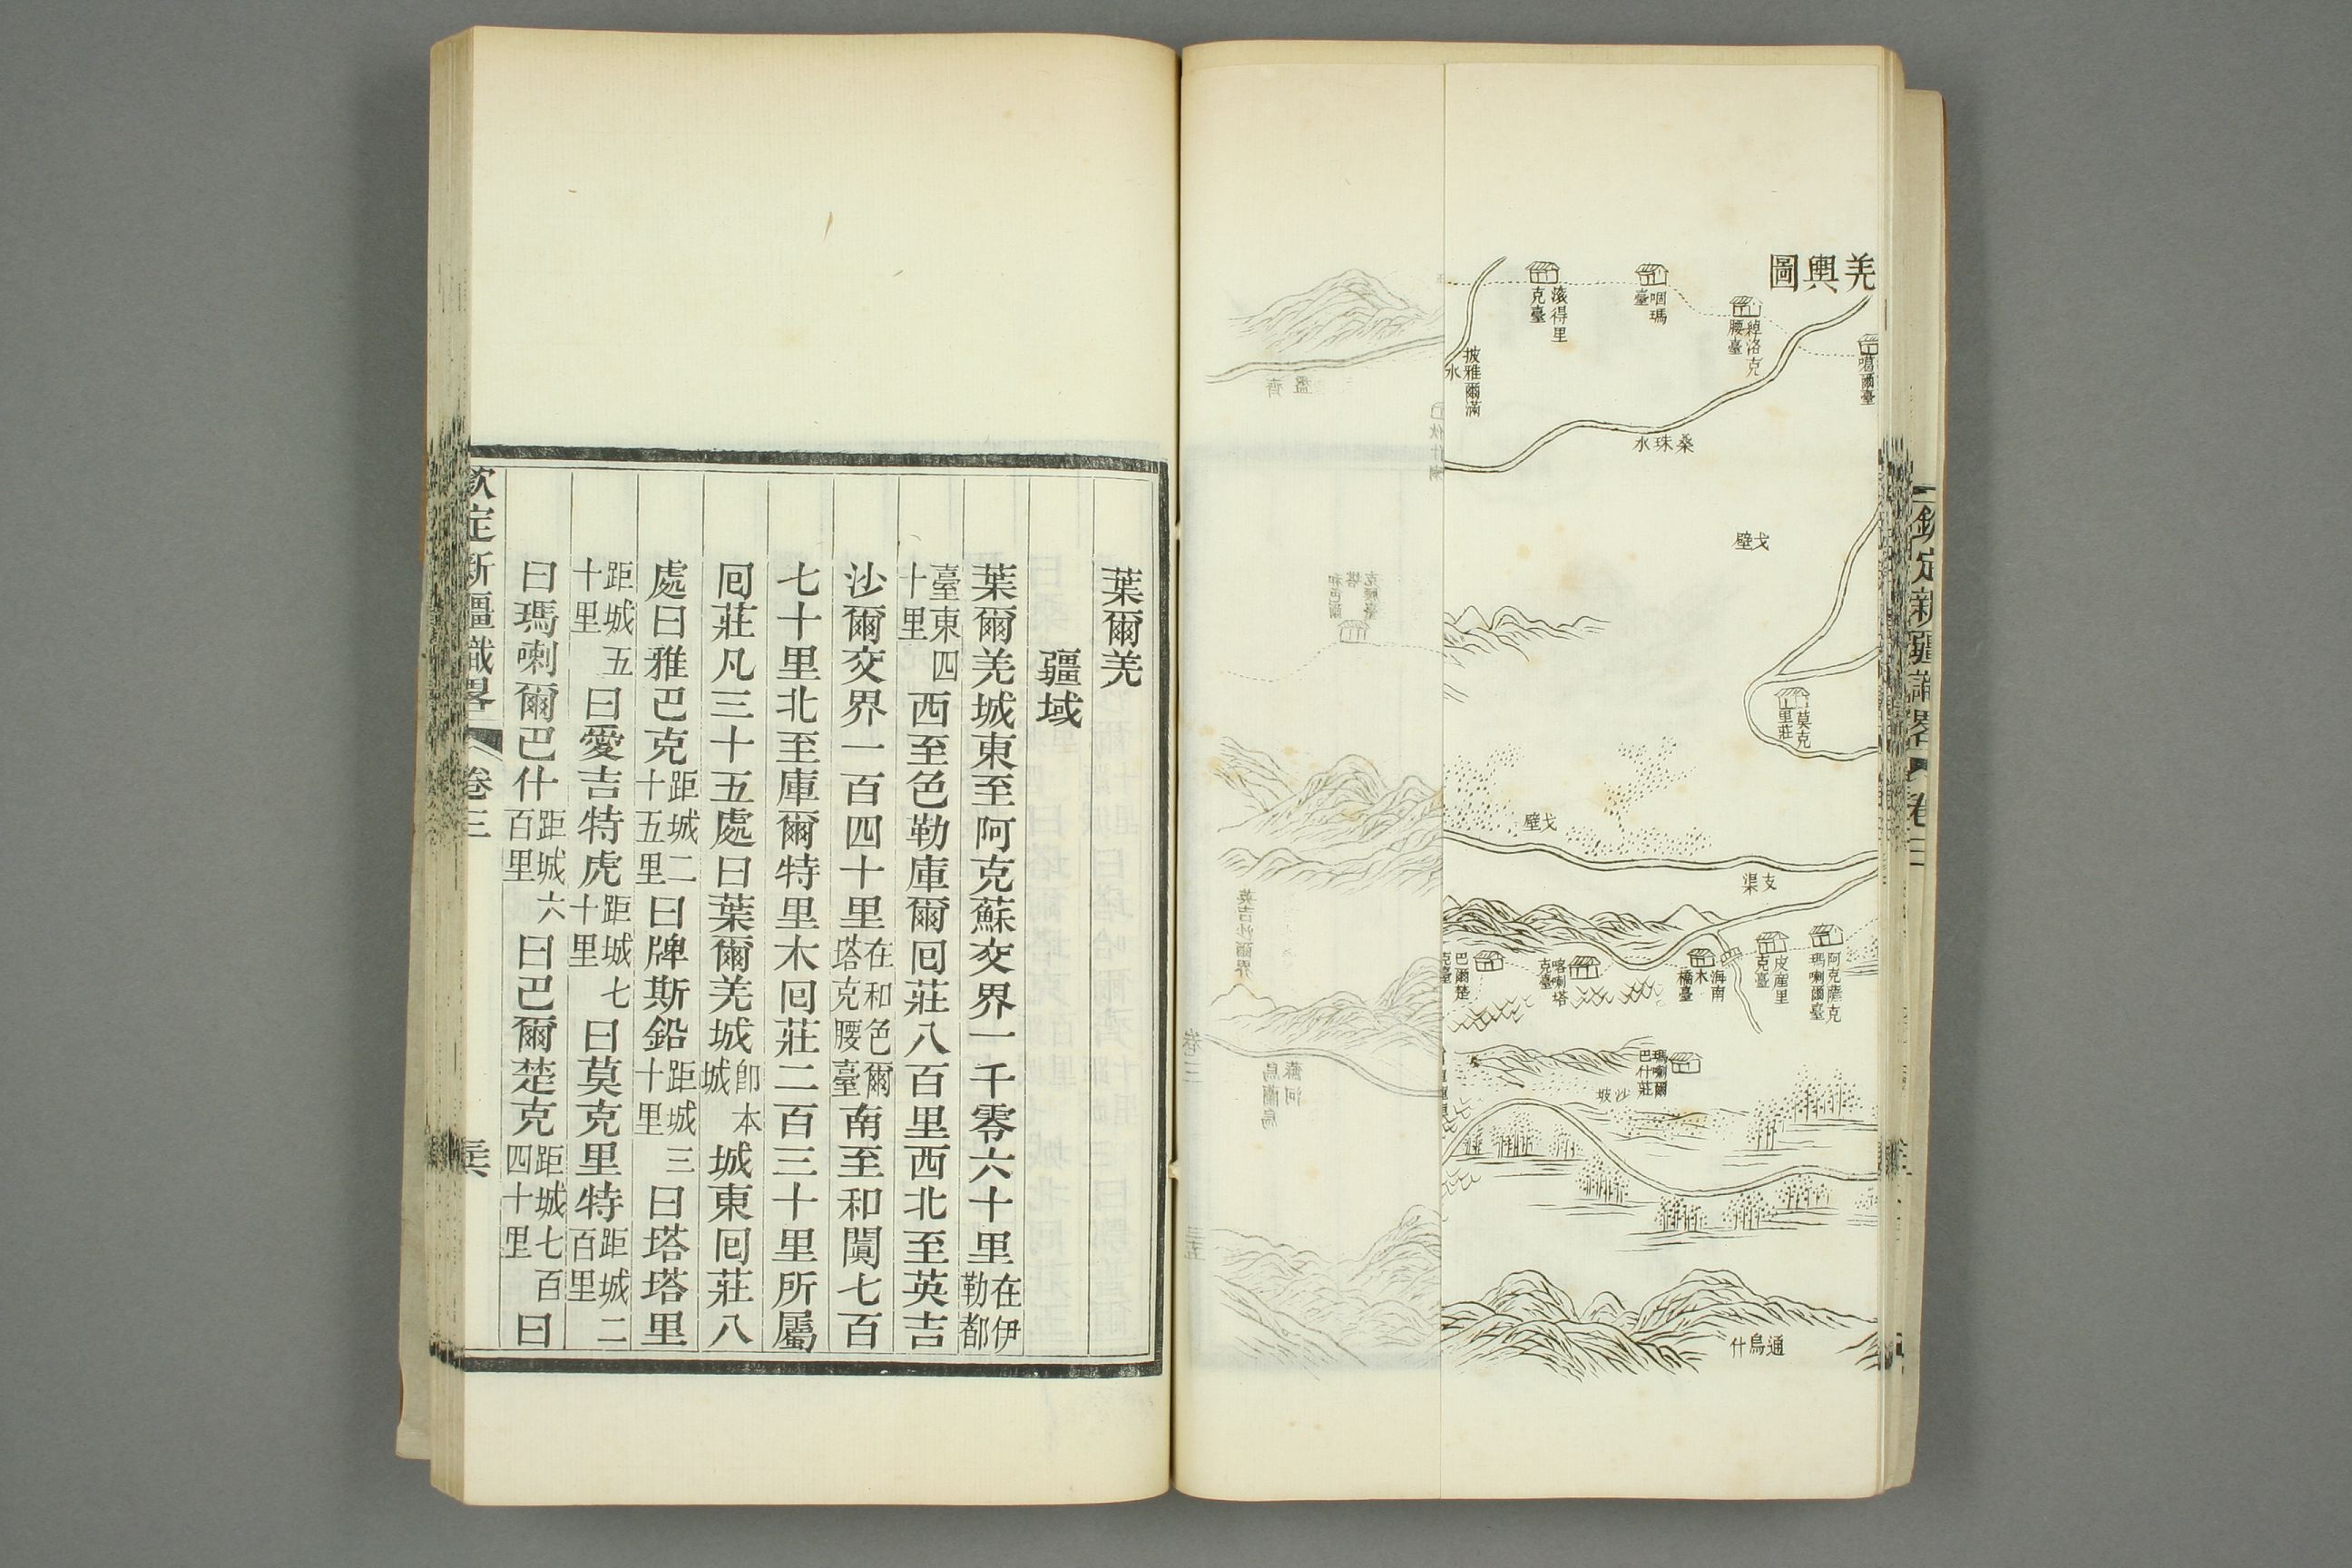 羌輿圖
噶爾臺
綽洛克腰臺
咽瑪臺
滾得里克臺
披雅爾滿水
桑珠水
戈壁
莫克里莊
戈壁
支渠
阿克薩克瑪喇爾臺
皮產里克臺
海南木橋臺
喀喇塔克臺
巴爾楚克臺
瑪喇爾巴什莊
沙坡
通烏什
欽定新疆識畧
卷三
葉爾羌
疆域
葉爾羌城東至阿克蘇交界一千零六十里在伊勒都
臺東四十里西至色勒庫爾囘莊八百里西北至英吉
沙爾交界一百四十里在和色爾塔克腰臺南至和闐七百
七十里北至庫爾特里木囘莊二百三十里所屬
囘莊凡三十五處曰葉爾羌城卽本城城東囘莊八
處曰雅巴克距城二十五里曰牌斯鉛距城三十里曰塔塔里
距城五十里曰愛吉特虎距城七十里曰莫克里特距城二百里
曰瑪喇爾巴什距城六百里曰巴爾楚克距城七百四十里曰
欽定新疆識畧
卷三